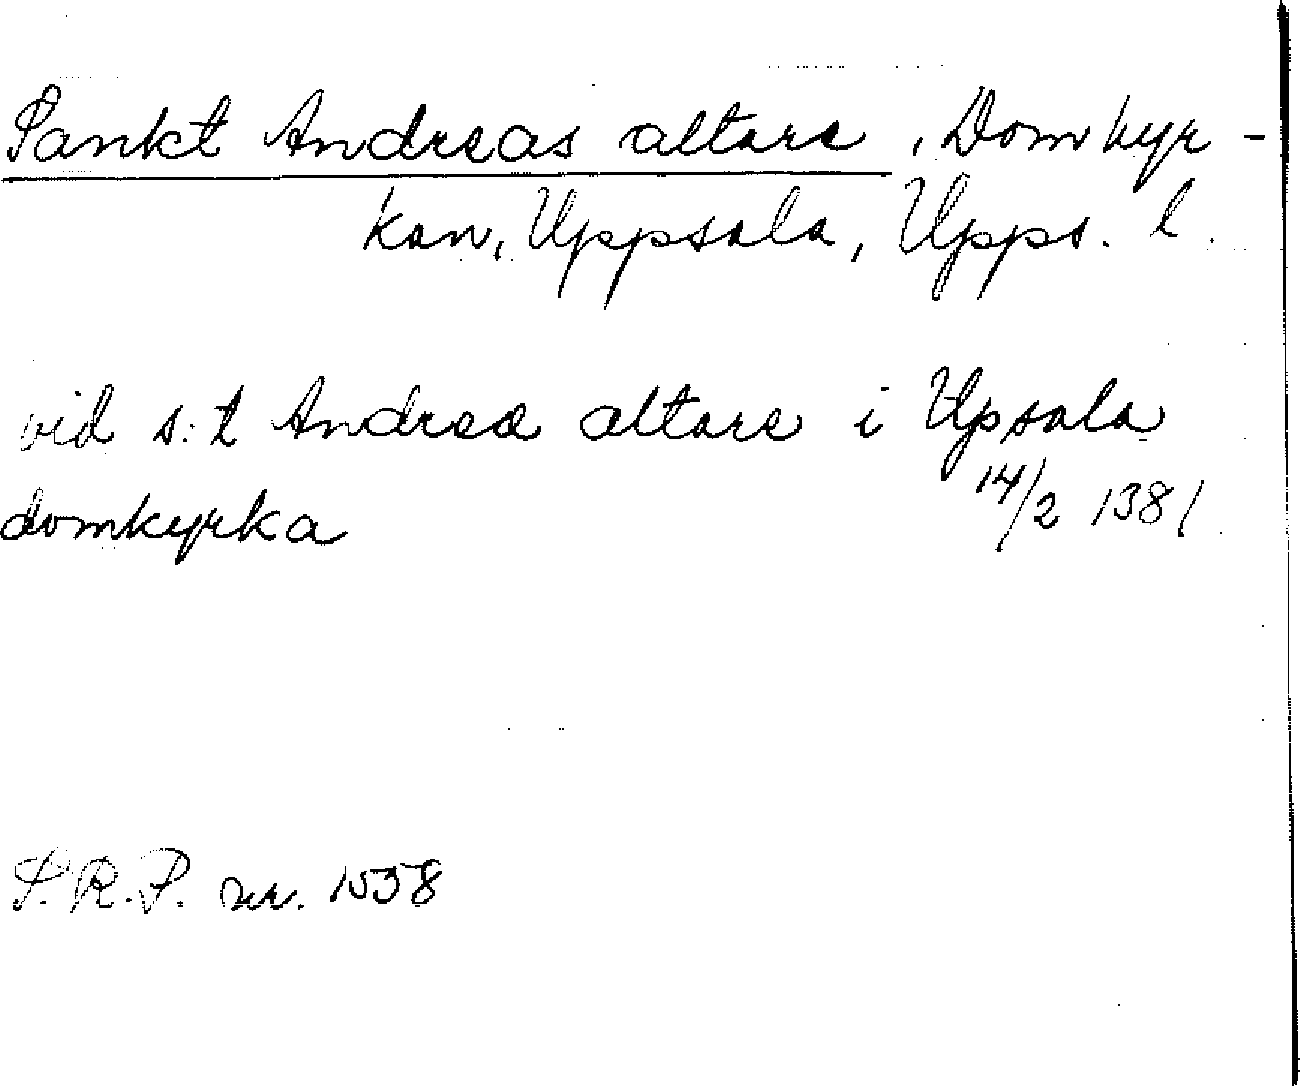 Sankt Andreas altare, Domkyr-
kan, Uppsala, Upps. l.
vid s:t Andreæ altare i Upsala
domkyrka 14/2 1381
S.R.P. nr. 1538